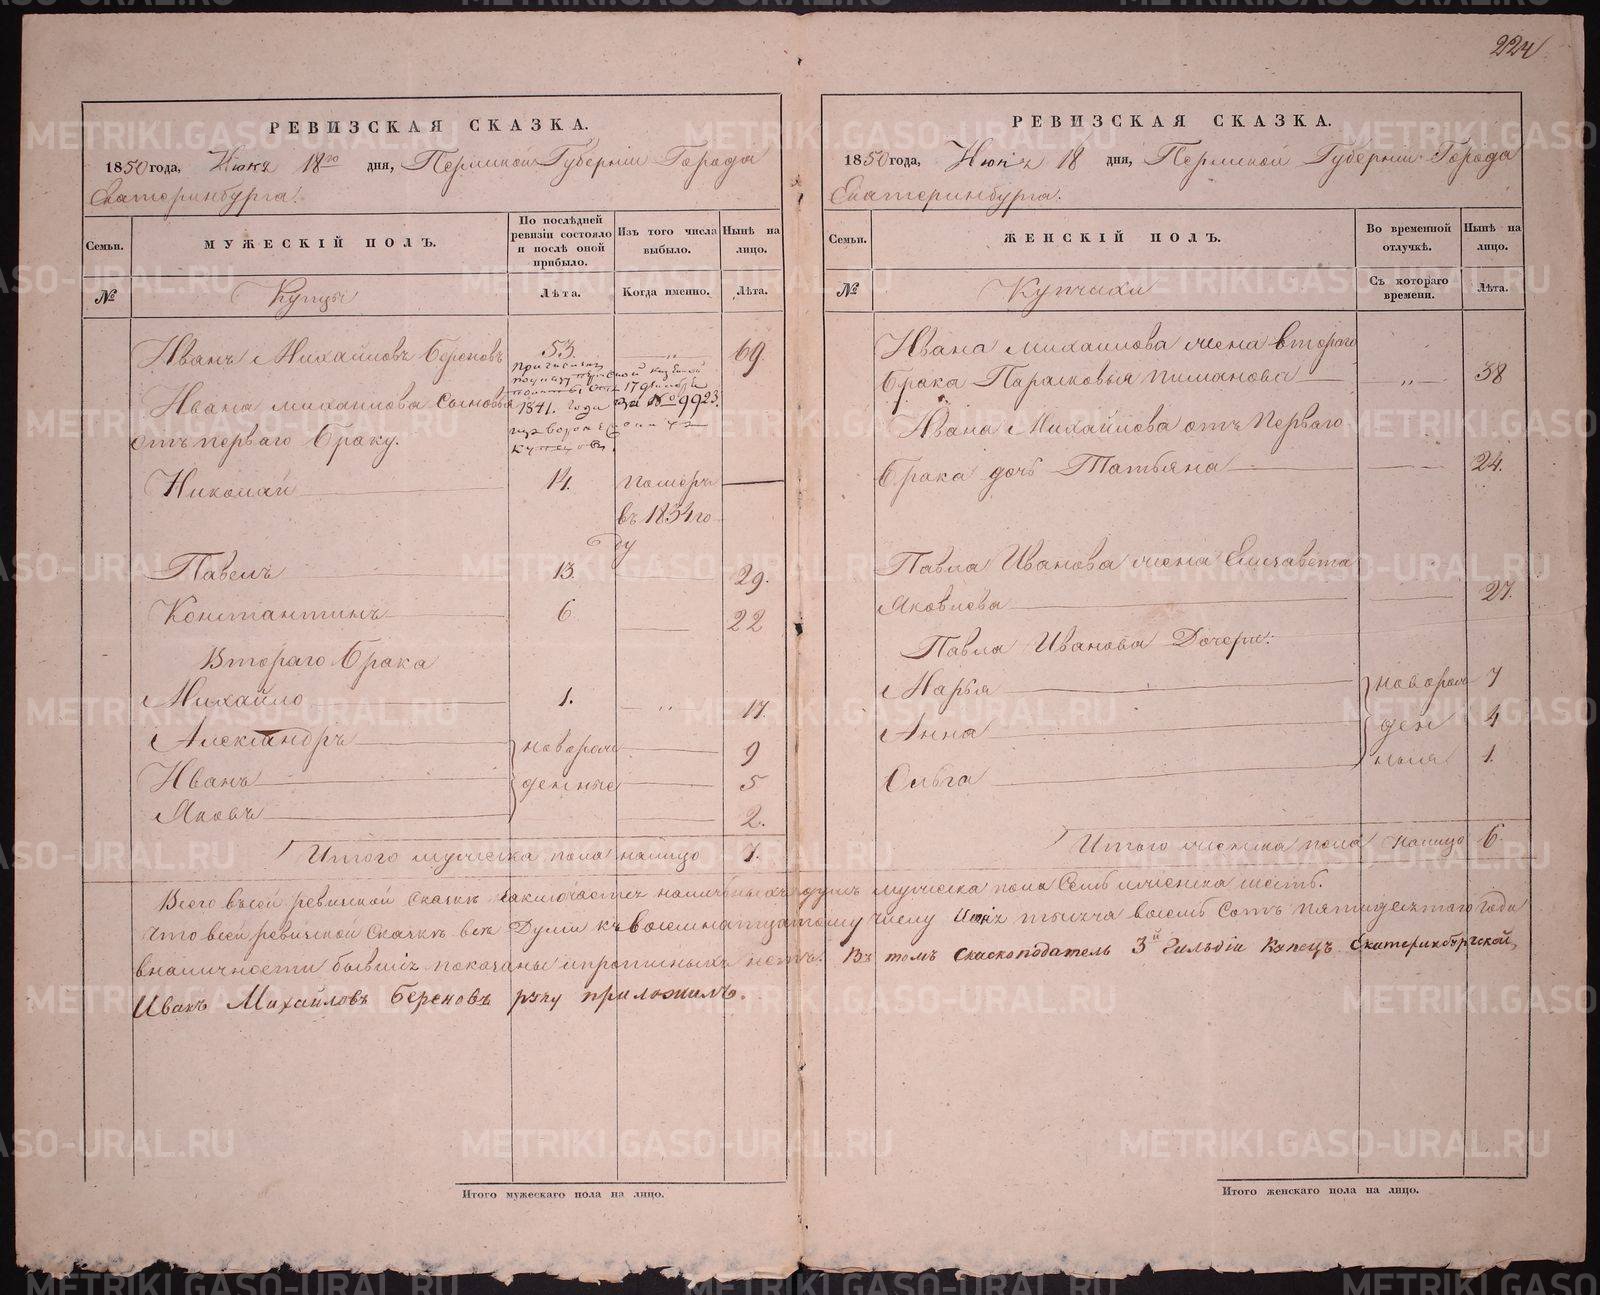 224
РЕВИЗСКАЯ СКАЗКА.
1850 года, Июня 18го дня, Пермской Губернiи Города
Екатеринбурга.
Семьи.
МУЖЕСКIЙ ПОЛЪ.
По послѣдней ревизiи состояло и послѣ оной прибыло.
Изъ того числа выбыло.
Нынѣ на лицо.
№
Купцы
Лѣта.
Когда именно.
Лѣта.
Иванъ Михайловъ Береновъ 53. 69.
Причислен
по указу Пермской Казенной
палаты отъ 17 Декабря
1841. года за № 9923.
из
купцовъ.
Ивана Михаилова Сыновья
отъ перваго браку.
Николай 14. Померъ
въ 1834 го
ду
Павелъ 13. 29.
Константинъ 6 22
Втораго брака
Михайло 1. 17.
Александръ новорож 9
Иванъ денные 5
Яковъ 2.
Итого мужеска пола налицо 7.
РЕВИЗСКАЯ СКАЗКА.
1850 года, Июня 18 дня, Пермской Губернiи Города
Екатеринбурга.
Семьи.
ЖЕНСКIЙ ПОЛЪ.
Во временной отлучкѣ.
Нынѣ на лицо.
№
Купчихи
Съ котораго времени.
Лѣта.
Ивана Михаилова жена втораго
брака Парасковья Пиманова 38
Ивана Михайлова отъ Перваго
брака дочь Татьяна 24.
Павла Иванова жена Елисавета
Яковлева 27.
Павла Иванова Дочери:
Марья новорож 7
Анна ден 4
Ольга ныя 1.
Итого женска пола налицо 6.
Всего въсей ревизской сказкѣ заключается наличныхъ душъ мужеска пола Семь и женска шесть.
Что всей ревизской Сказкѣ все Души къ восемнатцатому числу Июня тысяча восемь Сотъ пятидесятаго года
вналичности бывшiя показаны и прописныхъ нетъ. Въ томъ Сказкоподатель 3й Гильдiи Купецъ Екатеринбургской,
Иванъ Михайловъ Береновъ руку приложилъ.
Итого мужескаго пола на лицо.
Итого женскаго пола на лицо.
METRIKI.GASO-URAL.RU